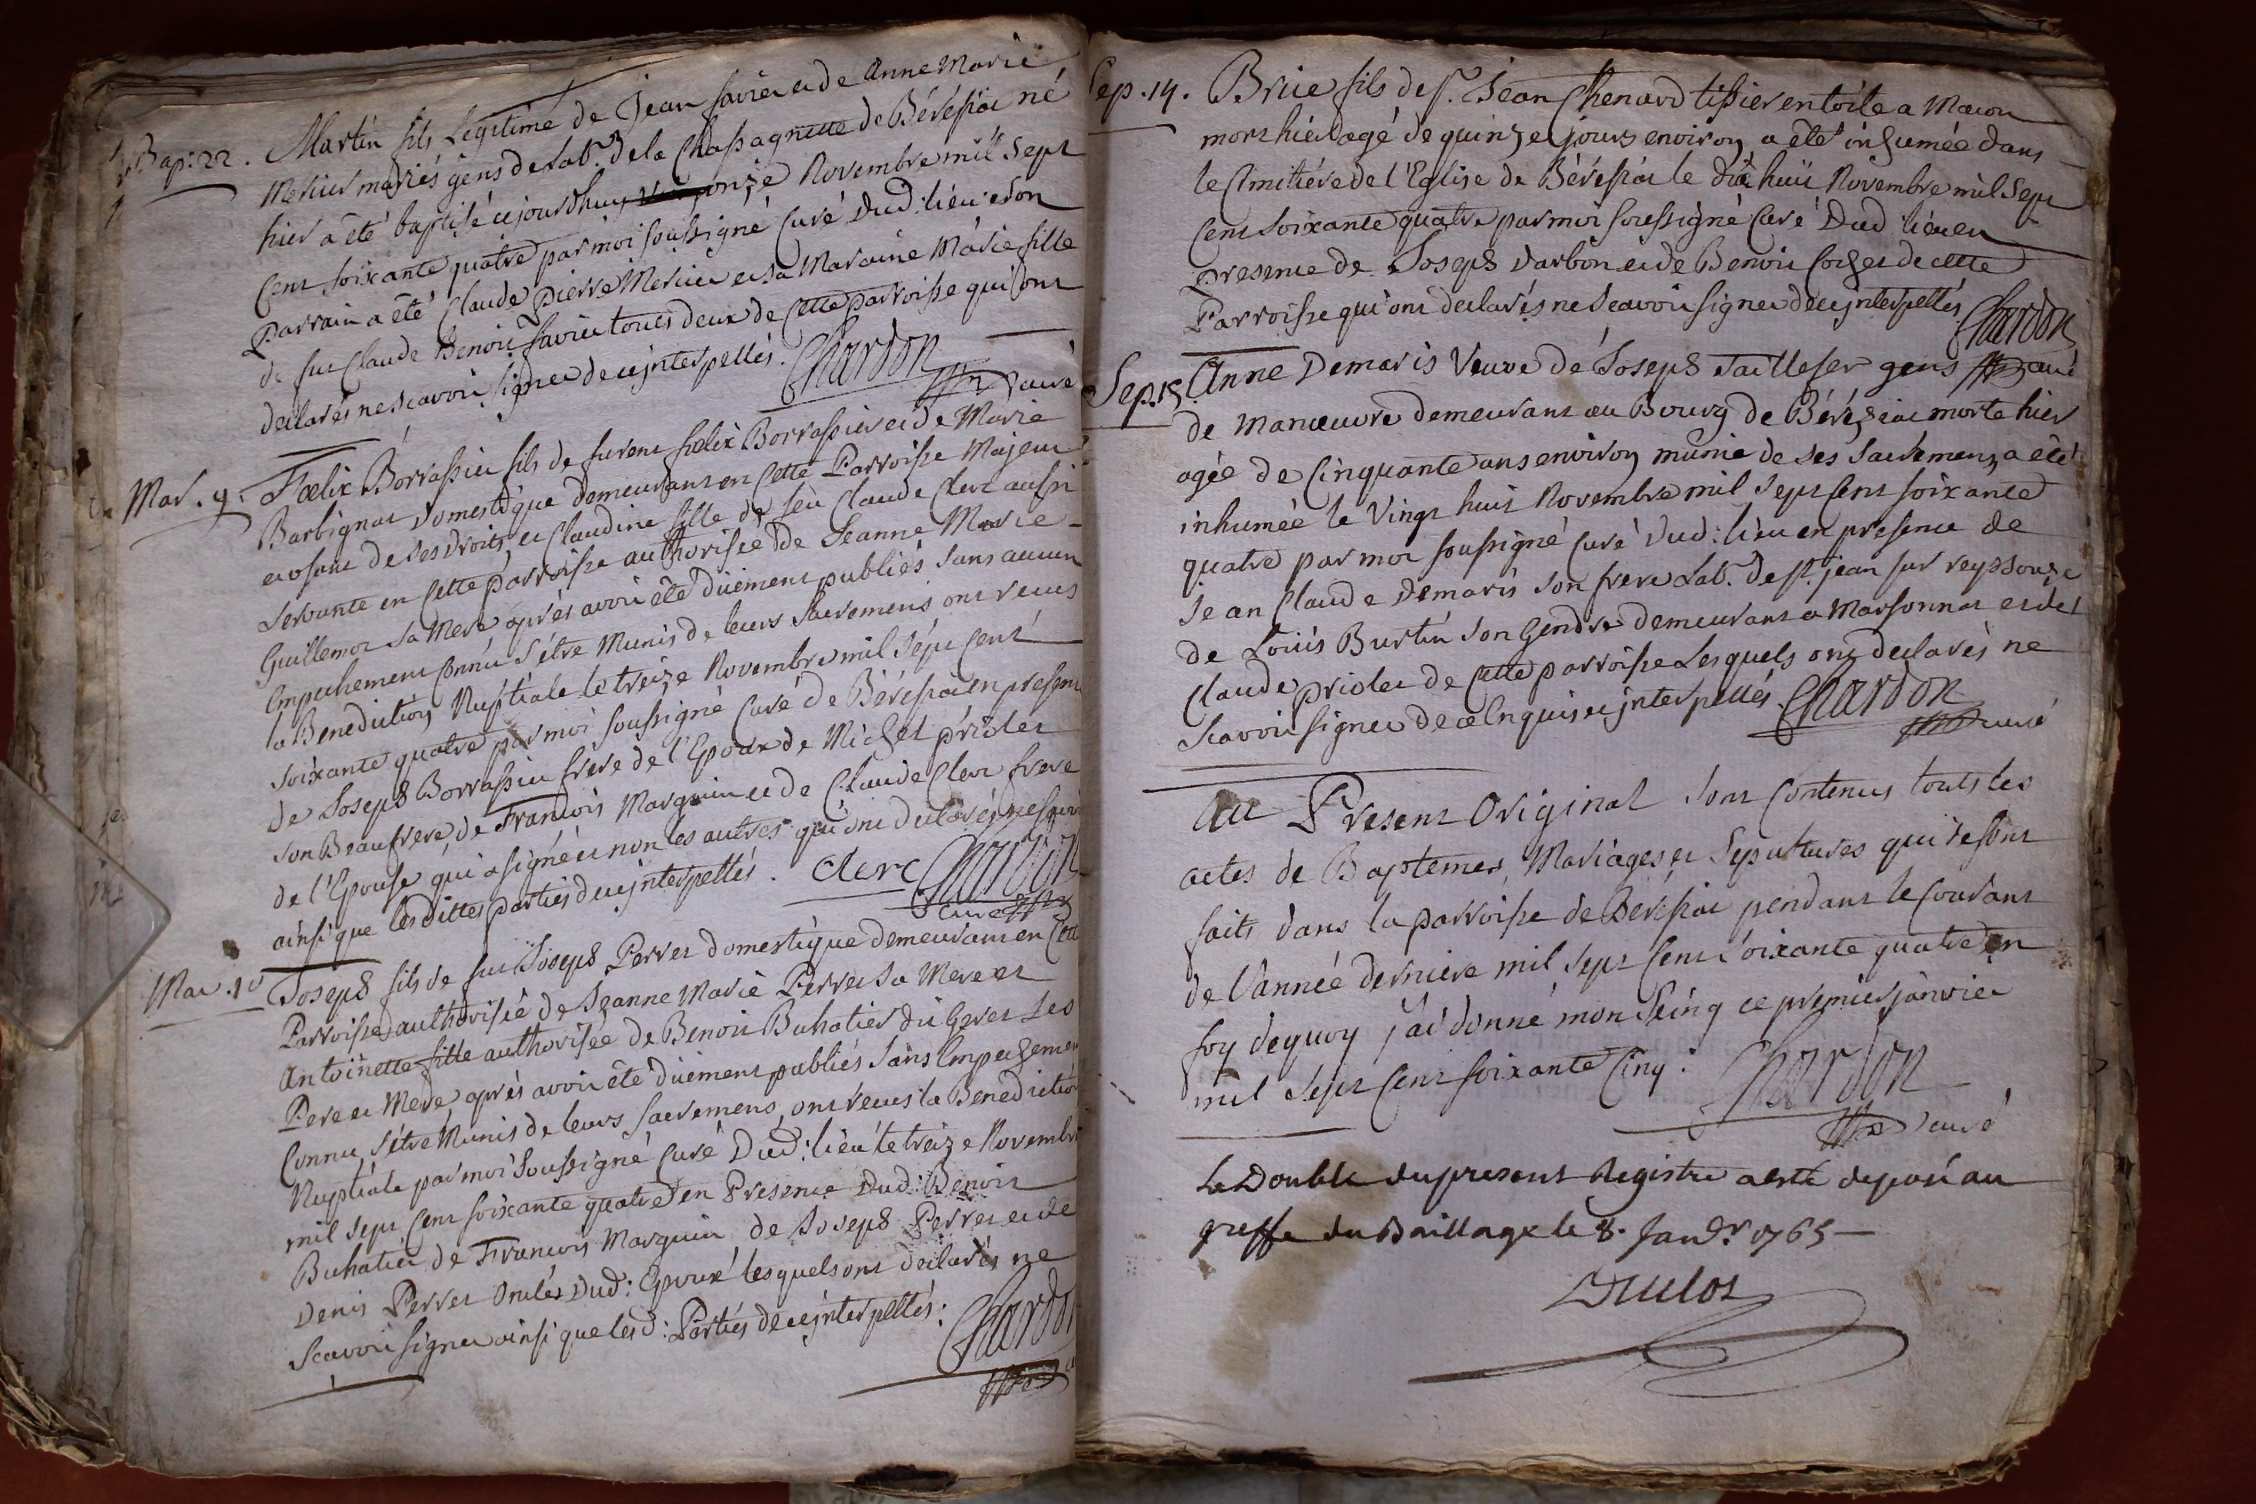 Bap: 22. Martin fils Legitime de Jean favier et de Anne Marie
Mercier mariés gens de Lab.r de la Chassagnette de Béréßiac né
hier a été baptisé cejourdhuy onze Novembre mil Sept
Cent Soixante quatre par moi soussigné Curé Dud: lieu Son
Parrain a été Claude Pierre Mercier et sa Maraine Marie fille
de fut Claude Benoit favier touts deux de Cette parroisse qui ont
declarés ne scavoir signer de ce jnterpellés. Chardon
curé
Mar. 9. Fœlix Borrassier fils de furent fœlix Borrassier et de Marie
Barbignat Domestique demeurant en Cette Parroisse Majeur
et osant de ses Droits, et Claudine fille de feu Claude Clerc aussi
servante en Cette parroisse authorisée de Jeanne Marie
Guillemot sa Mere après avoir été düement publiés sans aucun
Empechement Connu s'étre Munis de leurs Sacremens ont recus
la Benediction Nuptiale le treize Novembre mil Sept Cent
soixante quatre par moi soussigné Curé de Béréßiac en presence
de Joseph Borrassier frere de l'Epoux de Michel priolet
son Beaufrere, de Francois Marguin et de Claude Clerc frere
de l'Epouse qui a signé et non les autres qui ont declarés ne scavoir
ainsi que lesdittes parties de ce jnterpellés. Clerc Chardon
curé
Mar. 10 Joseph fils de fut Joseph Perret domestique demeurant en Cette
Parroisse authorisé de Jeanne Marie Perret sa Mere et
Antoinette fille authorisée de Benoit Buhatier du Geret Les
Pere et Mere après avoir été düement publiés sans Empechement
Connu s'étre Munis de leurs Sacremens, ont recus la Benediction
Nuptiale par moi soussigné Curé Dud: lieu le treize Novembre
mil sept Cent soixante quatre en Presence Dud: Benoit
Buhatier de Francois Marguin de Joseph Perret et de
Denis Perret Oncles Dud: Epoux lesquels ont declarés ne
scavoir signer ainsi que lesd: Parties de ce jnterpellés: Chardon
Sep. 14. Brice fils de s.r Jean Chenard tissier en toile a Macon
mort hier agé de quinze jours environ a été inhumée dans
le Cimitiére de l'Eglise de Béréßiac le dix huit Novembre mil Sept
Cent soixante quatre par moi soussigné Curé Dud: lieu en
presence de Joseph Darbon et de Benoit Cochet de cette
Parroisse qui ont declarés ne scavoir signer de ce jnterpellés Chardon
curé
Sep. 15 Anne Demaris Veuve de Joseph Taillefer gens
de manœuvre demeurant au Bourg de Béréziac morte hier
agée de Cinquante ans environ munie de ses Sacremens, a été
inhumée le Vingt huit Novembre mil sept Cent soixante
quatre par moi soussigné Curé Dud: lieu en presence de
Jean Claude Demaris son frere Lab.r de s.t jean sur reyssouze
de Loüis Burtin son Gendre demeurant a Marsonnat et de
Claude priolet de Cette parroisse Lesquels ont declarés ne
scavoir signer de ce Enquis et jnterpellés Chardon
curé
Au Present Original sont Contenus touts les
actes de Baptemes, Mariages et Sepultures qui se sont
faits dans la parroisse de Béréßiac pendant le Courant
de l'année derniere mil sept Cent Soixante quatre en
foy dequoy j'ai donné mon Seing ce premier janvier
mil Sept Cent soixante Cinq: Chardon
curé
Le Double du present Registre a esté deposé au
greffe du Baillage le 8. Janv.r 1765